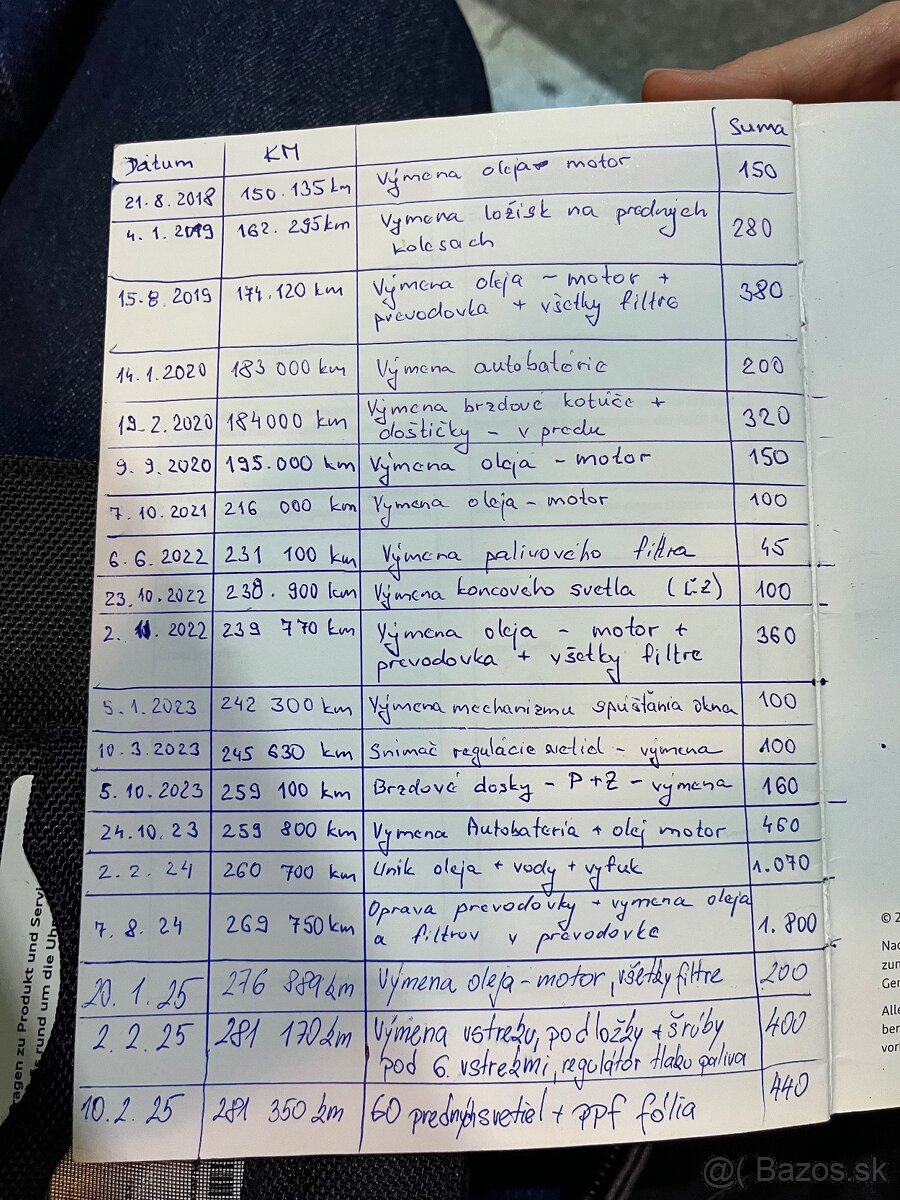 Dátum KM Suma
21.8.2018 150.135 km Výmena oleja motor 150
4.1.2019 162.295 km Výmena ložísk na predných
kolesach 280
15.8.2019 174.120 km Výmena oleja - motor +
prevodovka + všetky filtre 380
14.1.2020 183 000 km Výmena autobatérie 200
19.2.2020 184000 km Výmena brzdové kotúče +
doštičky - v predu 320
9.9.2020 195.000 km Výmena oleja - motor 150
7.10.2021 216 000 km Výmena oleja - motor 100
6.6.2022 231 100 km Výmena palivového filtra 45
23.10.2022 238.900 km Výmena koncového svetla (Ľ.Z) 100
2.11.2022 239 770 km Výmena oleja - motor +
prevodovka + všetky filtre 360
5.1.2023 242 300 km Výmena mechanizmu spúšťania okna 100
10.3.2023 245 630 km Snímač regulácie svetiel - výmena 100
5.10.2023 259 100 km Brzdové dosky - P+Z - výmena 160
24.10.23 259 800 km Výmena Autobateria + olej motor 460
2.2.24 260 700 km Unik oleja + vody + vyfuk 1.070
7.8.24 269 750 km Oprava prevodovky + vymena oleja
a filtrov v prevodovke 1.800
20.1.25 276 889 km Výmena oleja - motor, všetky filtre 200
2.2.25 281 170 km Výmena vstreku, podložky + šróby
pod 6. vstrekmi, regulátor tlaku paliva 400
10.2.25 281 350 km GO predných svetiel + PPF fólia 440
ragen zu Produkt und Servi
rund um die Uhr
© 2
Nac
zun
Ger
Alle
ber
vor
@( Bazos.sk